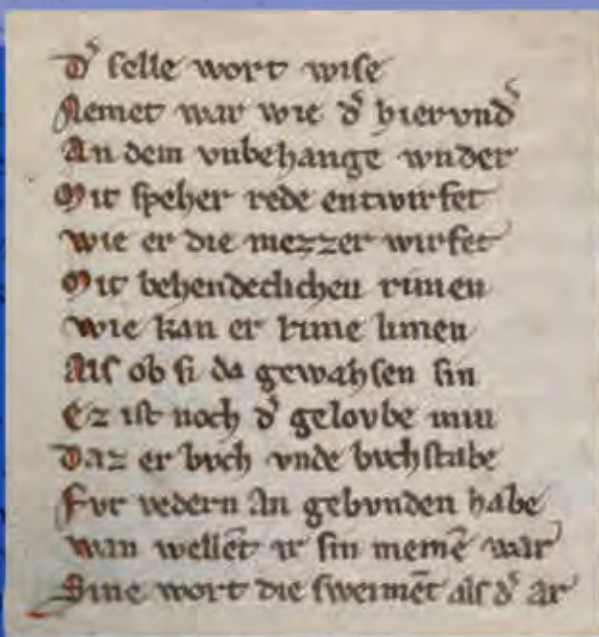 D' ſelle wort wiſe
Nemet war wie d' hiervnd'
An dem vnbehange wnder
Mit ſpeher rede entwirfet
wie er die mezzer wirfet
Mit behendeclichen rimen
wie kan er rime limen
Alſ ob ſi da gewahſen ſin
Ez iſt noch d' gelovbe min
Daz er bvch vnde bvchſtabe
Fvr vedern An gebvnden habe
wan wellēt ir ſin memē war
Sine wort die ſweimēt alſ d' ar